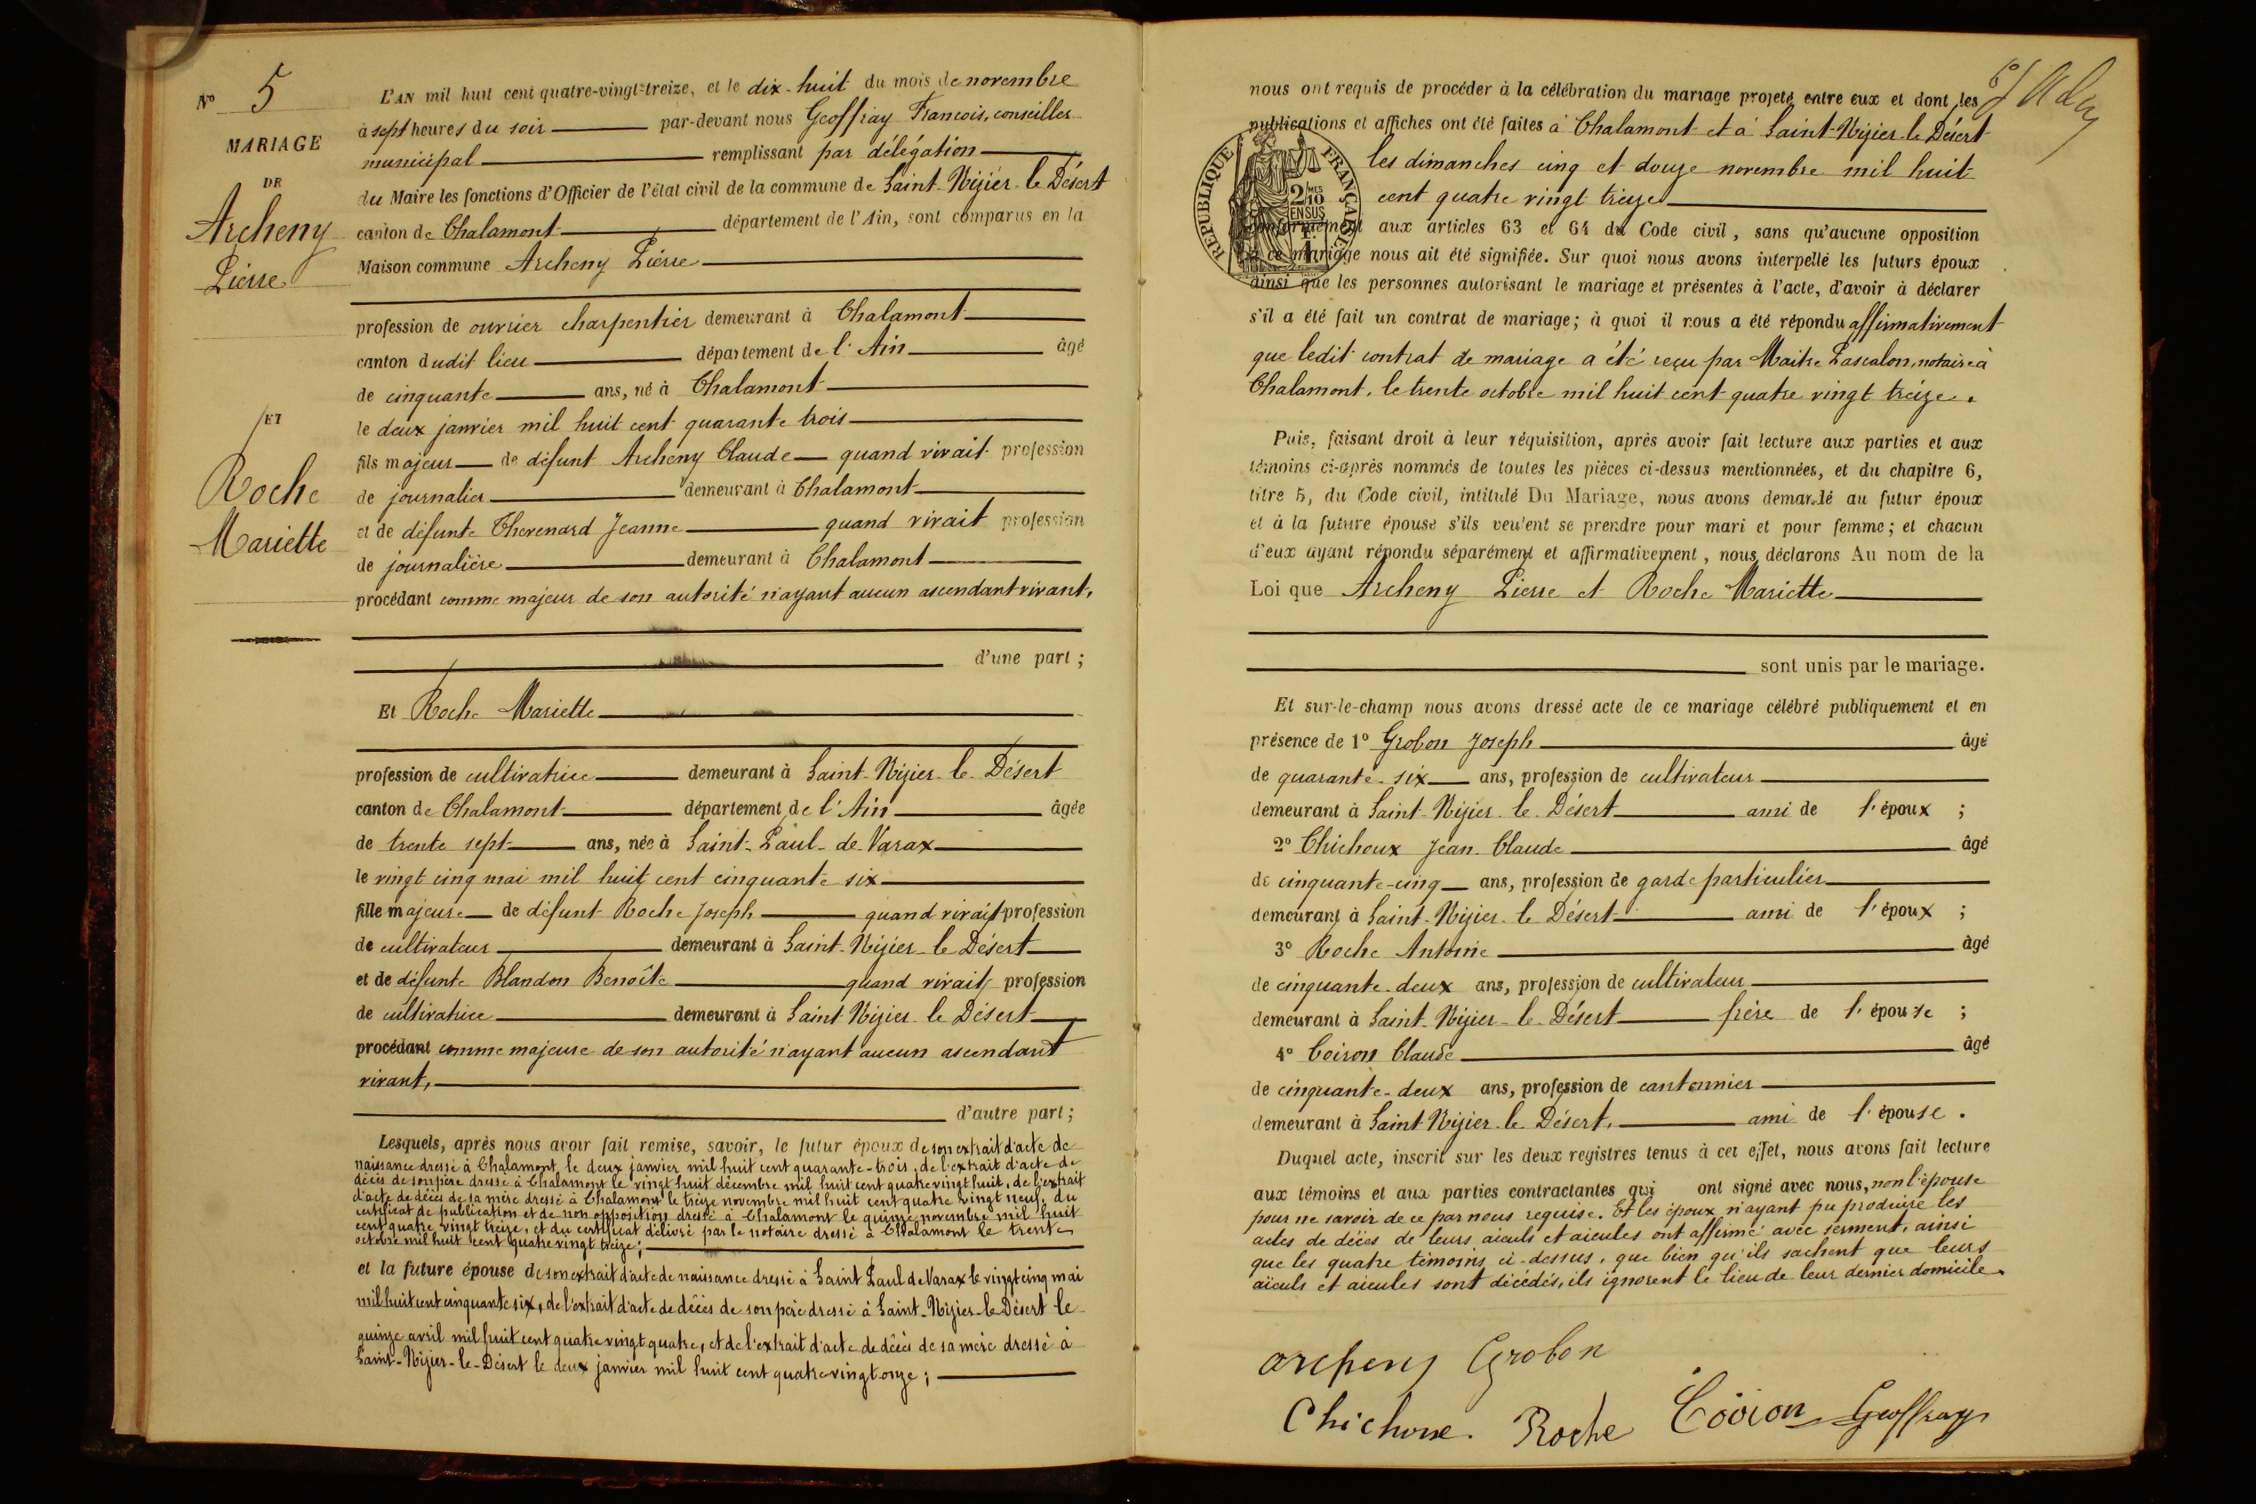 No 5
MARIAGE
DE
Archeny
Pierre
ET
Roche
Mariette
L'AN mil huit cent quatre-vingt-treize, et le dix-huit du mois de novembre
à sept heures du soir par-devant nous Geoffray Francois, conseiller
municipal remplissant par délégation
du Maire les fonctions d'Officier de l'état civil de la commune de Saint-Nizier-le-Désert
canton de Chalamont département de l'Ain, sont comparus en la
Maison commune Archeny Pierre
profession de ouvrier charpentier demeurant à Chalamont
canton dudit lieu département de l'Ain âgé
de cinquante ans, né à Chalamont
le deux janvier mil huit cent quarante trois
fils majeur de défunt Archeny Claude quand vivait profession
de journalier demeurant à Chalamont
et de défunte Thevenard Jeanne quand vivait profession
de journalière demeurant à Chalamont
procédant comme majeur de son autorité n'ayant aucun ascendant vivant,
d'une part ;
Et Roche Mariette
profession de cultivatrice demeurant à Saint-Nizier-le-Désert
canton de Chalamont département de l'Ain âgée
de trente sept ans, née à Saint-Paul-de-Varax
le vingt cinq mai mil huit cent cinquante six
fille majeure de défunt Roche Joseph quand vivait profession
de cultivateur demeurant à Saint-Nizier-le-Désert
et de défunte Blandon Benoîte quand vivait profession
de cultivatrice demeurant à Saint-Nizier-le-Désert
procédant comme majeure de son autorité n'ayant aucun ascendant
vivant,
d'autre part ;
Lesquels, après nous avoir fait remise, savoir, le futur époux de son extrait d'acte de
naissance dressé à Chalamont, le deux janvier mil huit cent quarante-trois, de l'extrait d'acte de
décès de son père dressé à Chalamont le vingt huit décembre mil huit cent quatre vingt huit, de l'extrait
d'acte de décès de sa mère dressé à Chalamont le treize novembre mil huit cent quatre vingt neuf, du
certificat de publication et de non opposition dressé à Chalamont le quinze novembre mil huit
cent quatre vingt treize, et du certificat délivré par le notaire dressé à Chalamont le trente
octobre mil huit cent quatre vingt treize ;
et la future épouse de son extrait d'acte de naissance dressé à Saint Paul de Varax le vingt cinq mai
mil huit cent cinquante six, de l'extrait d'acte de décès de son père dressé à Saint-Nizier-le-Désert le
quinze avril mil huit cent quatre vingt quatre, et de l'extrait d'acte de décès de sa mère dressé à
Saint-Nizier-le-Désert le deux janvier mil huit cent quatre vingt onze ;
nous ont requis de procéder à la célébration du mariage projeté entre eux et dont les
publications et affiches ont été faites à Chalamont et à Saint-Nizier-le-Désert
les dimanches cinq et douze novembre mil huit
cent quatre vingt treize
RÉPUBLIQUE FRANÇAISE
2/10 EN SUS
conformément aux articles 63 et 64 du Code civil, sans qu'aucune opposition
à ce mariage nous ait été signifiée. Sur quoi nous avons interpellé les futurs époux
ainsi que les personnes autorisant le mariage et présentes à l'acte, d'avoir à déclarer
s'il a été fait un contrat de mariage ; à quoi il nous a été répondu affirmativement
que ledit contrat de mariage a été reçu par Maitre Pascalon, notaire à
Chalamont, le trente octobre mil huit cent quatre vingt treize.
Puis, faisant droit à leur réquisition, après avoir fait lecture aux parties et aux
témoins ci-après nommés de toutes les pièces ci-dessus mentionnées, et du chapitre 6,
titre 5, du Code civil, intitulé Du Mariage, nous avons demandé au futur époux
et à la future épouse s'ils veulent se prendre pour mari et pour femme ; et chacun
d'eux ayant répondu séparément et affirmativement, nous déclarons Au nom de la
Loi que Archeny Pierre et Roche Mariette
sont unis par le mariage.
Et sur-le-champ nous avons dressé acte de ce mariage célébré publiquement et en
présence de 1° Grobon Joseph âgé
de quarante-six ans, profession de cultivateur
demeurant à Saint-Nizier-le-Désert ami de l'époux ;
2° Chichoux Jean Claude âgé
de cinquante-cinq ans, profession de garde particulier
demeurant à Saint-Nizier-le-Désert ami de l'époux ;
3° Roche Antoine âgé
de cinquante-deux ans, profession de cultivateur
demeurant à Saint-Nizier-le-Désert frère de l'épouse ;
4° Coiron Claude âgé
de cinquante-deux ans, profession de cantonnier
demeurant à Saint Nizier-le-Désert, ami de l'épouse.
Duquel acte, inscrit sur les deux registres tenus à cet effet, nous avons fait lecture
aux témoins et aux parties contractantes qui ont signé avec nous, non l'épouse
pour ne savoir de ce par nous requise. Et les époux n'ayant pu produire les
actes de décès de leurs aïeuls et aïeules ont affirmé avec serment, ainsi
que les quatre témoins ci-dessus, que bien qu'ils sachent que leurs
aïeuls et aïeules sont décédés, ils ignorent le lieu de leur dernier domicile.
archeny Grobon
Chichoux. Roche Coiron Geoffray